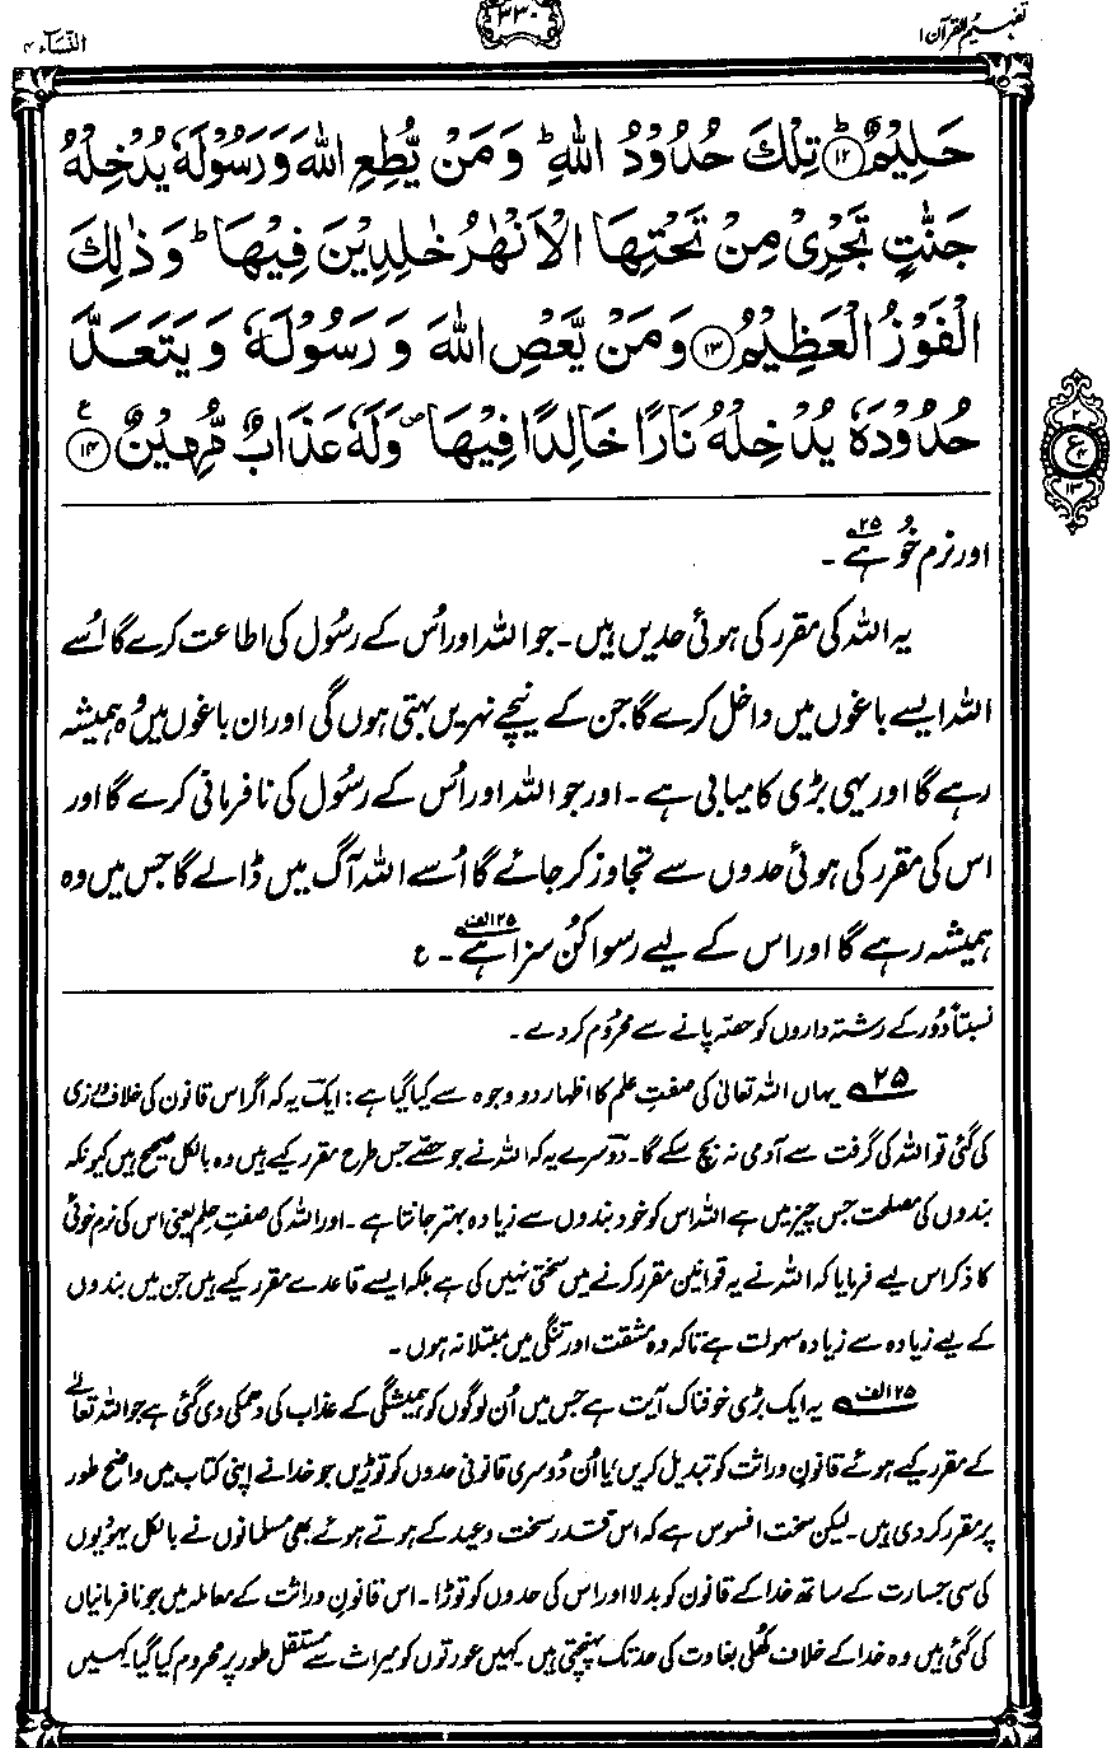 تفہیم القرآن ۱
۳۳۰
النسآء ۴
حَلِيْمٌ ﴿۱۲﴾ تِلْكَ حُدُوْدُ اللّٰهِ ؕ وَمَنْ يُّطِعِ اللّٰهَ وَرَسُوْلَهٗ يُدْخِلْهُ
جَنّٰتٍ تَجْرِيْ مِنْ تَحْتِهَا الْاَنْهٰرُ خٰلِدِيْنَ فِيْهَا ؕ وَذٰلِكَ
الْفَوْزُ الْعَظِيْمُ ﴿۱۳﴾ وَمَنْ يَّعْصِ اللّٰهَ وَرَسُوْلَهٗ وَيَتَعَدَّ
حُدُوْدَهٗ يُدْخِلْهُ نَارًا خَالِدًا فِيْهَا ۪ وَلَهٗ عَذَابٌ مُّهِيْنٌ ﴿۱۴﴾ ع
۲
ع
۴
۱۳
اور نرم خُو ہے ۲۵۔
یہ اللہ کی مقرر کی ہوئی حدیں ہیں۔ جو اللہ اور اُس کے رسُول کی اطاعت کرے گا اُسے
اللہ ایسے باغوں میں داخل کرے گا جن کے نیچے نہریں بہتی ہوں گی اور ان باغوں میں وُہ ہمیشہ
رہے گا اور یہی بڑی کامیابی ہے۔ اور جو اللہ اور اُس کے رسُول کی نافرمانی کرے گا اور
اس کی مقرر کی ہوئی حدوں سے تجاوز کر جائے گا اُسے اللہ آگ میں ڈالے گا جس میں وہ
ہمیشہ رہے گا اور اس کے لیے رسوا کُن سزا ہے ۲۵الف۔ ع
نسبتاً دُور کے رشتہ داروں کو حصّہ پانے سے محرُوم کر دے۔
۲۵ یہاں اللہ تعالیٰ کی صفتِ علم کا اظہار دو وجوہ سے کیا گیا ہے: ایک یہ کہ اگر اس قانون کی خلاف ورزی
کی گئی تو اللہ کی گرفت سے آدمی نہ بچ سکے گا۔ دوسرے یہ کہ اللہ نے جو حصّے جس طرح مقرر کیے ہیں وہ بالکل صحیح ہیں کیونکہ
بندوں کی مصلحت جس چیز میں ہے اللہ اس کو خود بندوں سے زیادہ بہتر جانتا ہے۔ اور اللہ کی صفتِ حِلم یعنی اس کی نرم خوئی
کا ذکر اس لیے فرمایا کہ اللہ نے یہ قوانین مقرر کرنے میں سختی نہیں کی ہے بلکہ ایسے قاعدے مقرر کیے ہیں جن میں بندوں
کے لیے زیادہ سے زیادہ سہولت ہے تاکہ وہ مشقت اور تنگی میں مبتلا نہ ہوں۔
۲۵الف یہ ایک بڑی خوفناک آیت ہے جس میں اُن لوگوں کو ہمیشگی کے عذاب کی دھمکی دی گئی ہے جو اللہ تعالےٰ
کے مقرر کیے ہوئے قانونِ وراثت کو تبدیل کریں، یا اُن دُوسری قانونی حدوں کو توڑیں جو خدا نے اپنی کتاب میں واضح طور
پر مقرر کر دی ہیں۔ لیکن سخت افسوس ہے کہ اس قدر سخت وعید کے ہوتے ہوئے بھی مسلمانوں نے بالکل یہودیوں
کی سی جسارت کے ساتھ خدا کے قانون کو بدلا اور اس کی حدوں کو توڑا۔ اس قانونِ وراثت کے معاملہ میں جو نافرمانیاں
کی گئی ہیں وہ خدا کے خلاف کُھلی بغاوت کی حد تک پہنچتی ہیں۔ کہیں عورتوں کو میراث سے مستقل طور پر محروم کیا گیا۔ کہیں